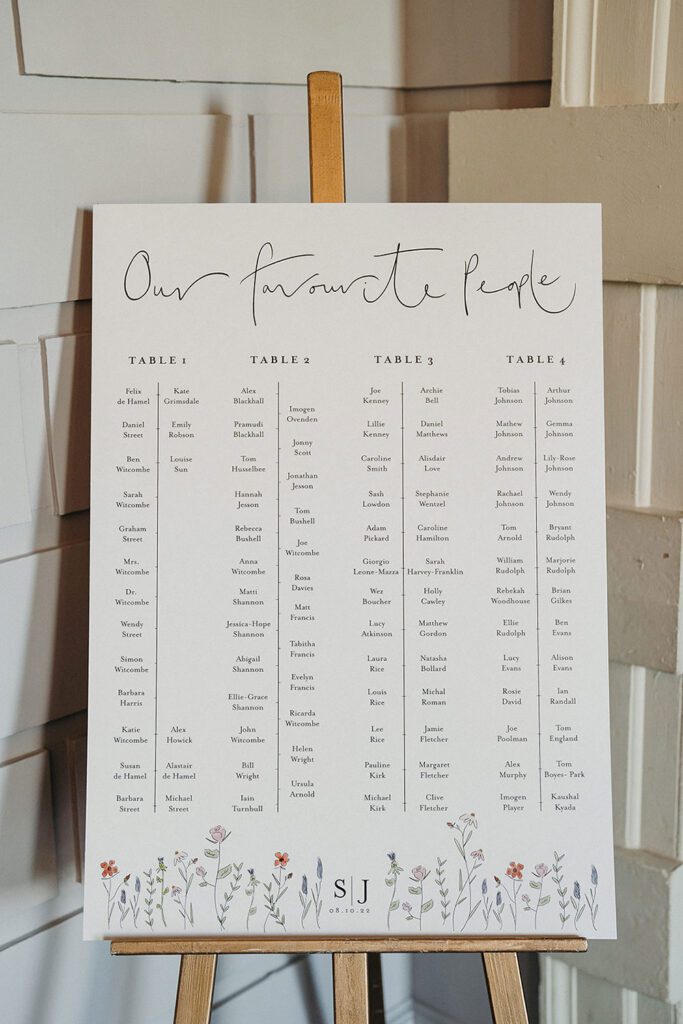 Our favourite People
TABLE 1
Felix
de Hamel
Kate
Grimsdale
Daniel
Street
Emily
Robson
Ben
Witcombe
Louise
Sun
Sarah
Witcombe
Graham
Street
Mrs.
Witcombe
Dr.
Witcombe
Wendy
Street
Simon
Witcombe
Barbara
Harris
Katie
Witcombe
Alex
Howick
Susan
de Hamel
Alastair
de Hamel
Barbara
Street
Michael
Street
TABLE 2
Alex
Blackhall
Imogen
Ovenden
Pramudi
Blackhall
Jonny
Scott
Tom
Husselbee
Jonathan
Jesson
Hannah
Jesson
Tom
Bushell
Rebecca
Bushell
Joe
Witcombe
Anna
Witcombe
Rosa
Davies
Matti
Shannon
Matt
Francis
Jessica-Hope
Shannon
Tabitha
Francis
Abigail
Shannon
Evelyn
Francis
Ellie-Grace
Shannon
Ricarda
Witcombe
John
Witcombe
Helen
Wright
Bill
Wright
Ursula
Arnold
Iain
Turnbull
TABLE 3
Joe
Kenney
Archie
Bell
Lillie
Kenney
Daniel
Matthews
Caroline
Smith
Alisdair
Love
Sash
Lowdon
Stephanie
Wentzel
Adam
Pickard
Caroline
Hamilton
Giorgio
Leone-Mazza
Sarah
Harvey-Franklin
Wez
Boucher
Holly
Cawley
Lucy
Atkinson
Matthew
Gordon
Laura
Rice
Natasha
Bollard
Louis
Rice
Michal
Roman
Lee
Rice
Jamie
Fletcher
Pauline
Kirk
Margaret
Fletcher
Michael
Kirk
Clive
Fletcher
TABLE 4
Tobias
Johnson
Arthur
Johnson
Mathew
Johnson
Gemma
Johnson
Andrew
Johnson
Lily-Rose
Johnson
Rachael
Johnson
Wendy
Johnson
Tom
Arnold
Bryant
Rudolph
William
Rudolph
Marjorie
Rudolph
Rebekah
Woodhouse
Brian
Gilkes
Ellie
Rudolph
Ben
Evans
Lucy
Evans
Alison
Evans
Rosie
David
Ian
Randall
Joe
Poolman
Tom
England
Alex
Murphy
Tom
Boyes- Park
Imogen
Player
Kaushal
Kyada
S|J
08.10.22